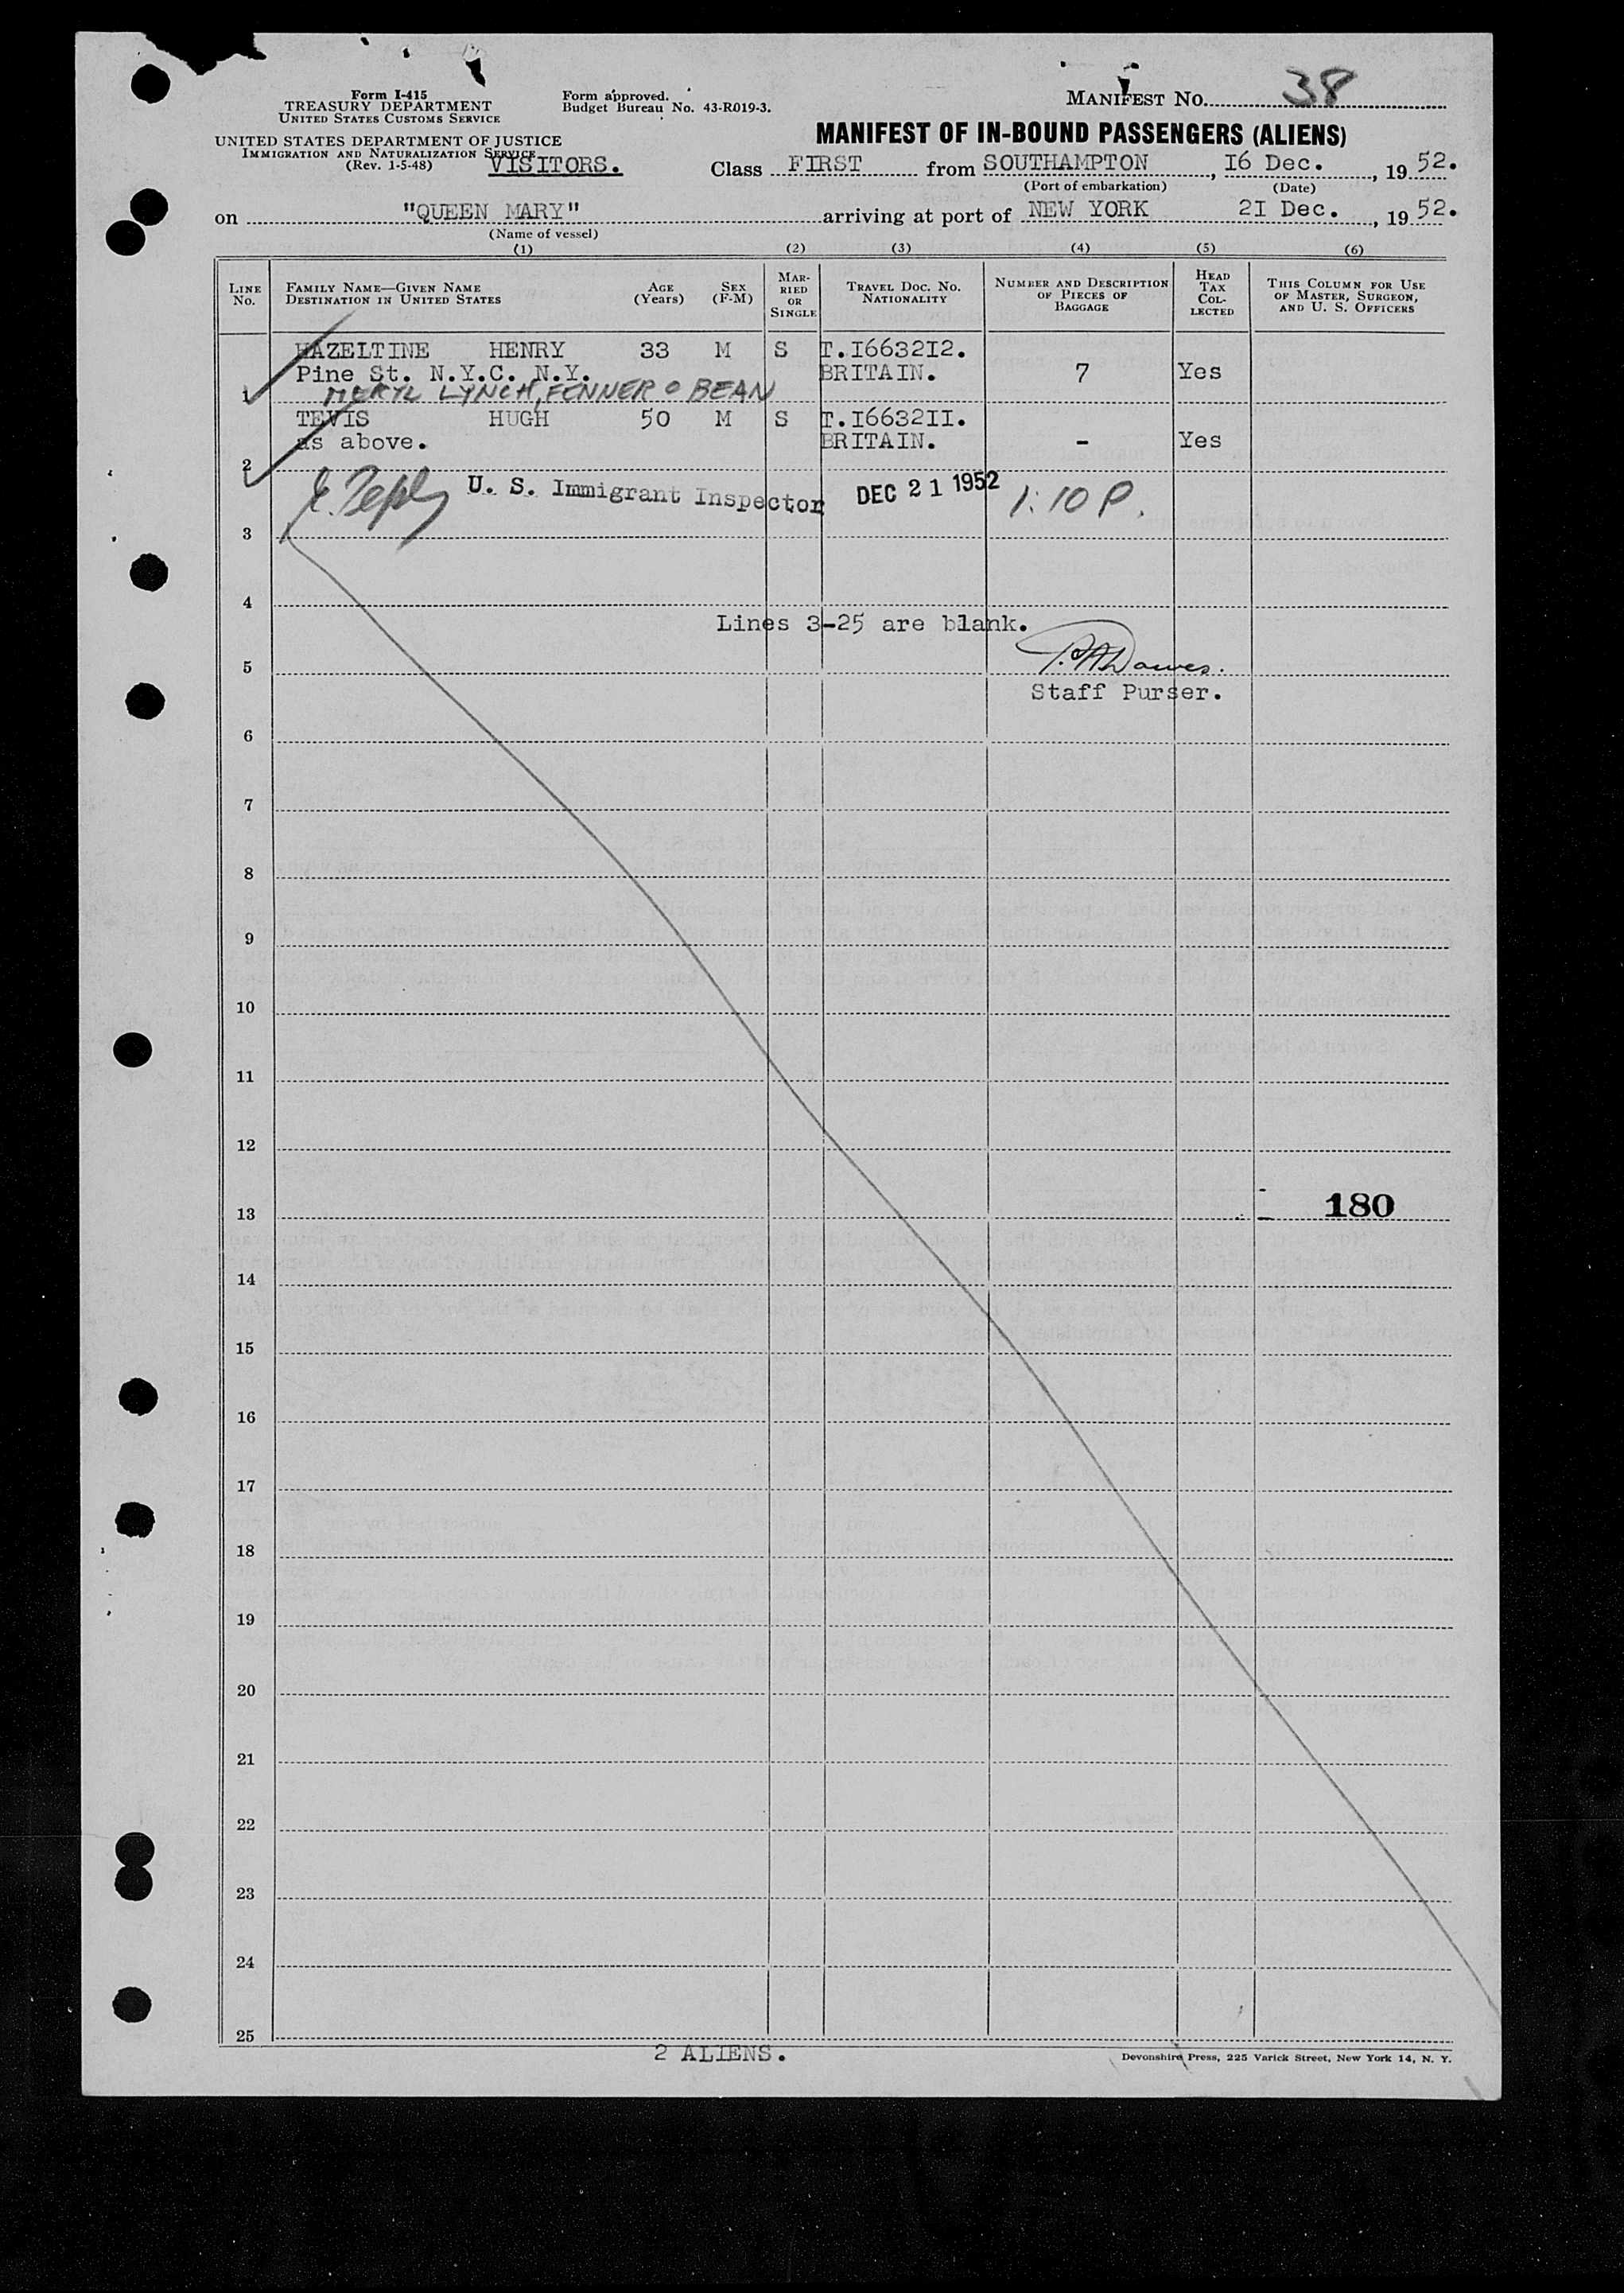 Form I-415
TREASURY DEPARTMENT
UNITED STATES CUSTOMS SERVICE
UNITED STATES DEPARTMENT OF JUSTICE
IMMIGRATION AND NATURALIZATION SERVICE
(Rev. 1-5-48)
VISITORS.
Form approved.
Budget Bureau No. 43-R019-3.
MANIFEST NO. 38
MANIFEST OF IN-BOUND PASSENGERS (ALIENS)
Class FIRST from SOUTHAMPTON, I6 Dec., 19 52.
(Port of embarkation) (Date)
on "QUEEN MARY" arriving at port of NEW YORK 2I Dec., 19 52.
(Name of vessel)
(1) (2) (3) (4) (5) (6)
LINE No. FAMILY NAME—GIVEN NAME DESTINATION IN UNITED STATES AGE (Years) SEX (F-M) MARRIED OR SINGLE TRAVEL DOC. NO. NATIONALITY NUMBER AND DESCRIPTION OF PIECES OF BAGGAGE HEAD TAX COLLECTED THIS COLUMN FOR USE OF MASTER, SURGEON, AND U. S. OFFICERS
HAZELTINE HENRY 33 M S T.I6632I2.
Pine St. N.Y.C. N.Y. BRITAIN. 7 Yes
1 MERYL LYNCH, FENNER & BEAN
TEVIS HUGH 50 M S T.I6632II.
as above. BRITAIN. - Yes
2
U. S. Immigrant Inspector DEC 21 1952 1:10 P.
3
4
Lines 3-25 are blank.
5
Staff Purser.
6
7
8
9
10
11
12
13 180
14
15
16
17
18
19
20
21
22
23
24
25
2 ALIENS.
Devonshire Press, 225 Varick Street, New York 14, N. Y.